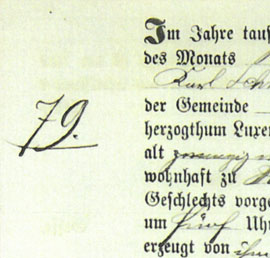 Im Jahre taus
des Monats
Karl
der Gemeinde
79.
herzogthum Luxe
alt zwanzig
wohnhaft zu
Geschlechts vorge
um fünf Uhr
erzeugt von ihm